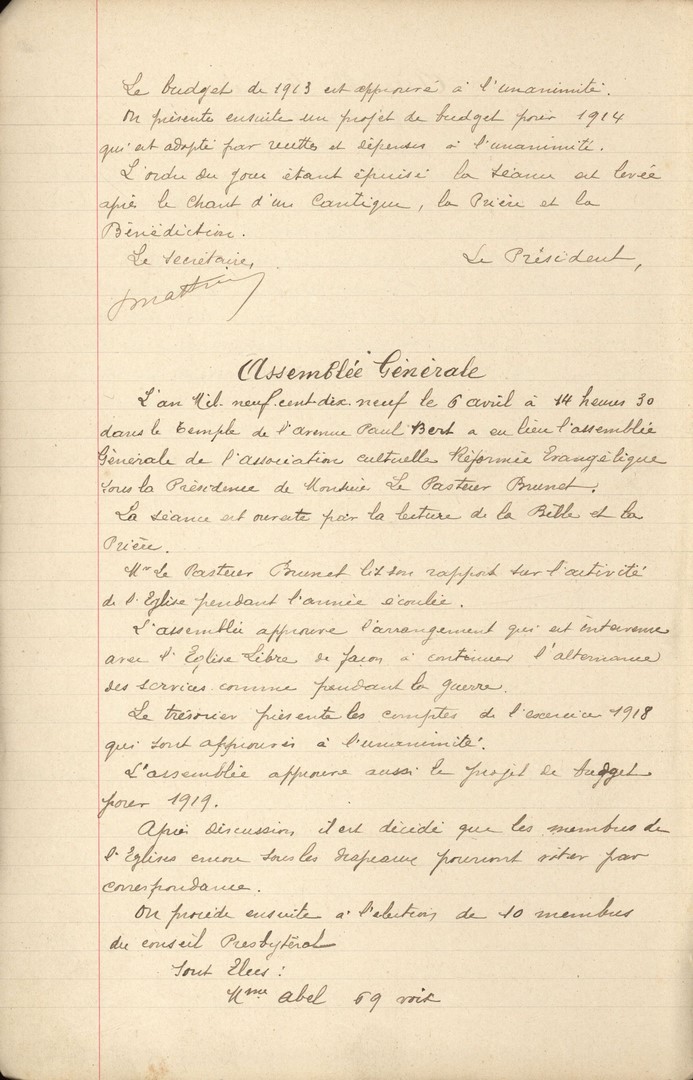 Le budget de 1913 est approuvé à l'unanimité.
On présente ensuite un projet de budget pour 1914
qui est adopté par recettes et dépenses à l'unanimité.
L'ordre du jour étant épuisé la séance est levée
après le chant d'un Cantique, la Prière et la
Bénédiction.
Le Secrétaire, Le Président,
Assemblée Générale
L'an Mil. neuf. cent dix. neuf le 6 avril à 14 heures 30
dans le Temple de l'avenue Paul Bert a eu lieu l'assemblée
Générale de l'association cultuelle Réformée Evangélique
sous la Présidence de Monsieur Le Pasteur Brunet.
La séance est ouverte par la lecture de la Bible et la
Prière.
Mr Le Pasteur Brunet lit son rapport sur l'activité
de l'Eglise pendant l'année écoulée.
L'assemblée approuve l'arrangement qui est intervenu
avec l'Eglise Libre de façon à continuer l'alternance
des services comme pendant la guerre.
Le trésorier présente les comptes de l'exercice 1918
qui sont approuvés à l'unanimité.
L'assemblée approuve aussi le projet de budget
pour 1919.
Après discussion, il est décidé que les membres de
l'Eglises encore sous les drapeaux pourront voter par
correspondance.
On procède ensuite à l'élection de 10 membres
du conseil Presbytéral
Sont Elus :
Mme Abel 69 voix